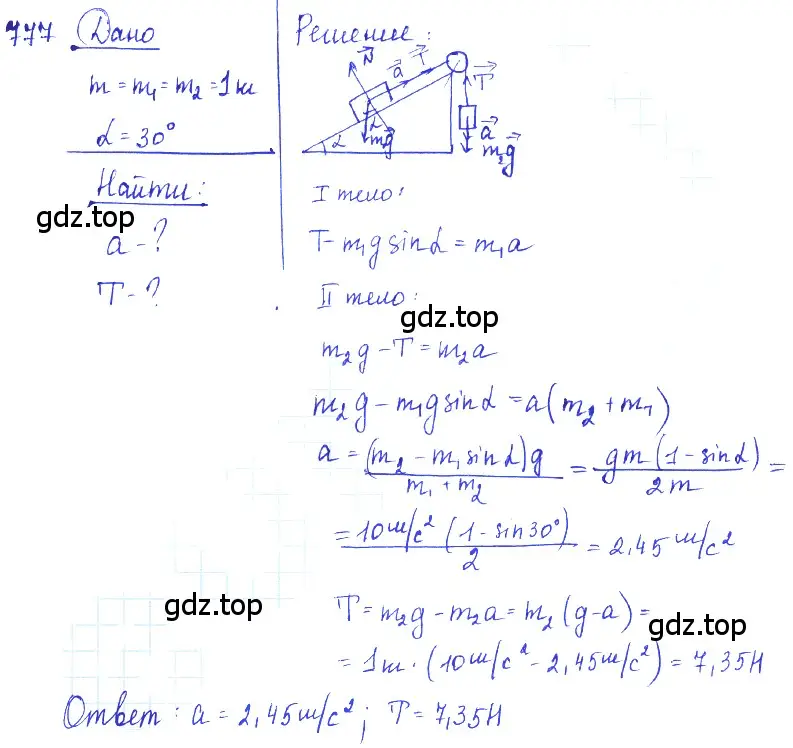 777 Дано
m = m₁ = m₂ = 1кг
α = 30°
Найти:
gdz.top
a - ?
T - ?
Решение:
N a T T
α mg α a m₂g
I тело:
T - m₁g sinα = m₁a
II тело:
gdz.top
m₂g - T = m₂a
m₂g - m₁g sinα = a(m₂ + m₁)
a = (m₂ - m₁ sinα)g / m₁ + m₂ = gm(1 - sinα) / 2m =
= 10 м/с² (1 - sin30°) / 2 = 2,45 м/с²
gdz.top
T = m₂g - m₂a = m₂(g - a) =
gdz.top
= 1кг · (10 м/с² - 2,45 м/с²) = 7,35Н
Ответ: a = 2,45 м/с²; T = 7,35Н